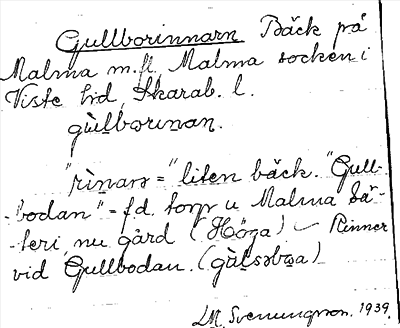 Gullborinnarn Bäck på
Malma m.fl. Malma socken i
Viste hd, Skarab. l.
gùlborinan.
"rìnarə = "liten bäck. "Gull-
-bodan" = f.d. torp u Malma Sä-
-teri, nu gård (Höga) – Rinner
vid Gullbodan. (gàlsəbəa)
M. Svenungson. 1939